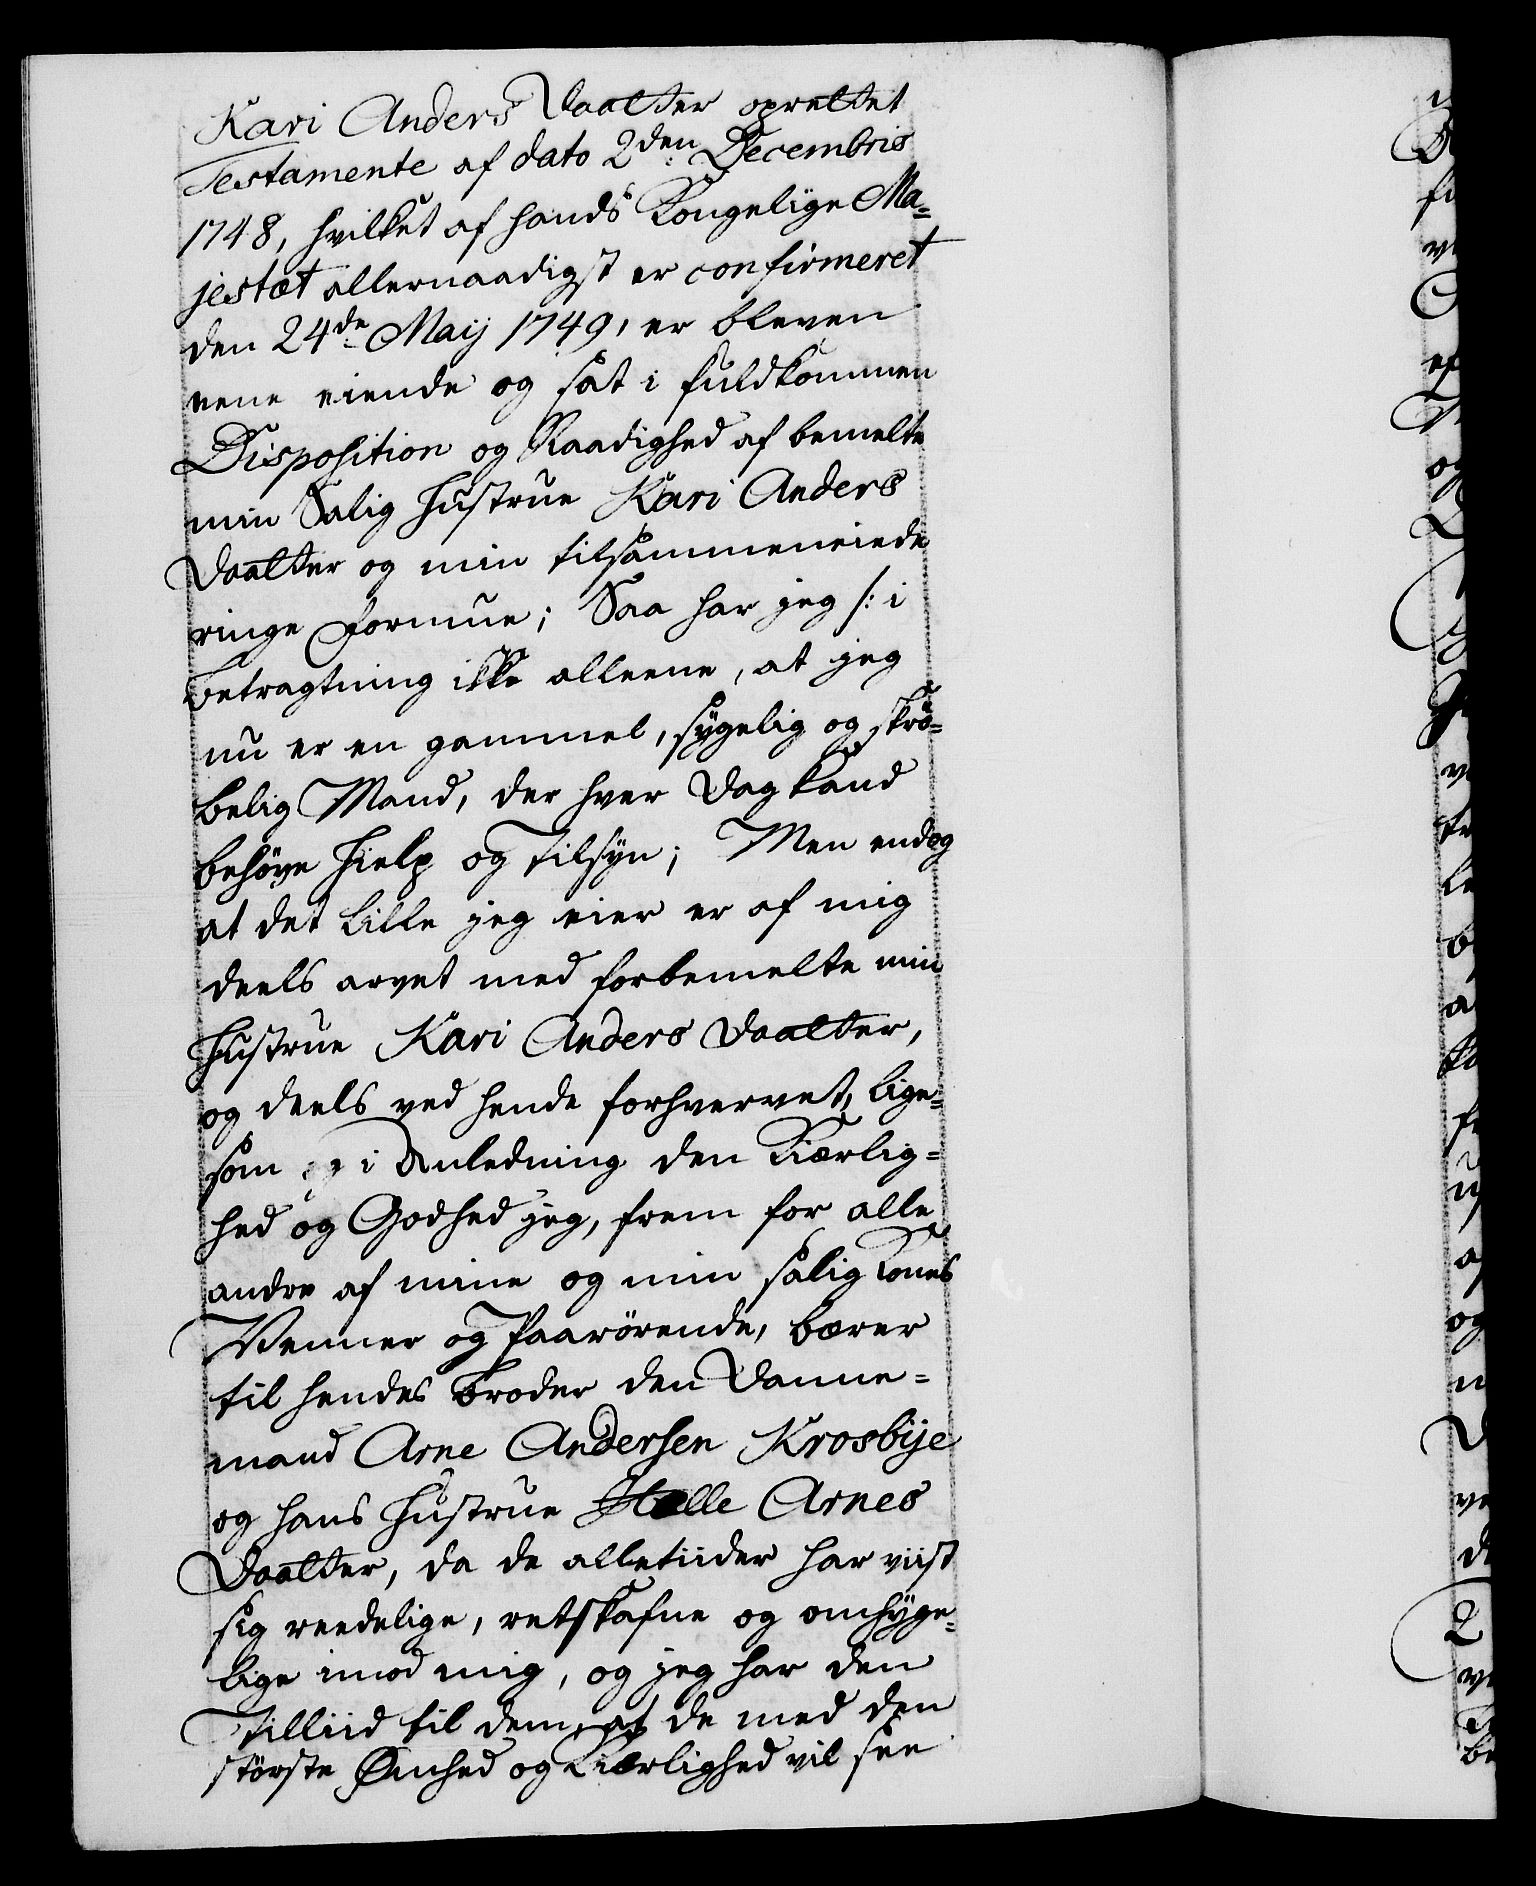 Kari Anders Daatter oprettet
Testamente af dato 2den Decembris
1748, hvilket af hands Kongelige Ma=
jestæt allernaadigst er confirmeret
den 24de Maij 1749, er bleven
eene eiende og sat i fuldkommen
Disposition og Raadighed af bemelte
min Salig Hustrue Kari Anders
Daatter og min tilsammeneiede
ringe Formue; Saa har jeg /: i
betragtning ikke alleene, at jeg
nu er en gammel, sygelig og skrö=
belig Mand, der hver Dag kand
behöve Hielp og Tilsyn; Men endog
at det lille jeg eier er af mig
deels arvet med forbemelte min
Hustrue Kari Anders Daatter,
og deels ved hende forhvervet, lige=
som og i Anledning den Kiærlig=
hed og Godhed jeg, frem for alle
andre af mine og min salig Kones
Venner og Paarörende, bærer
til hendes Broder den Danne=
mand Arne Andersen Krosbye
og hans Hustrue Helle Arnes
Daatter, da de alletiider har viist
sig reedelige, retskafne og omhyge=
lige imod mig, og jeg har den
Tilliid til dem, at de med den
störste Ömhed og Kiærlighed vil see